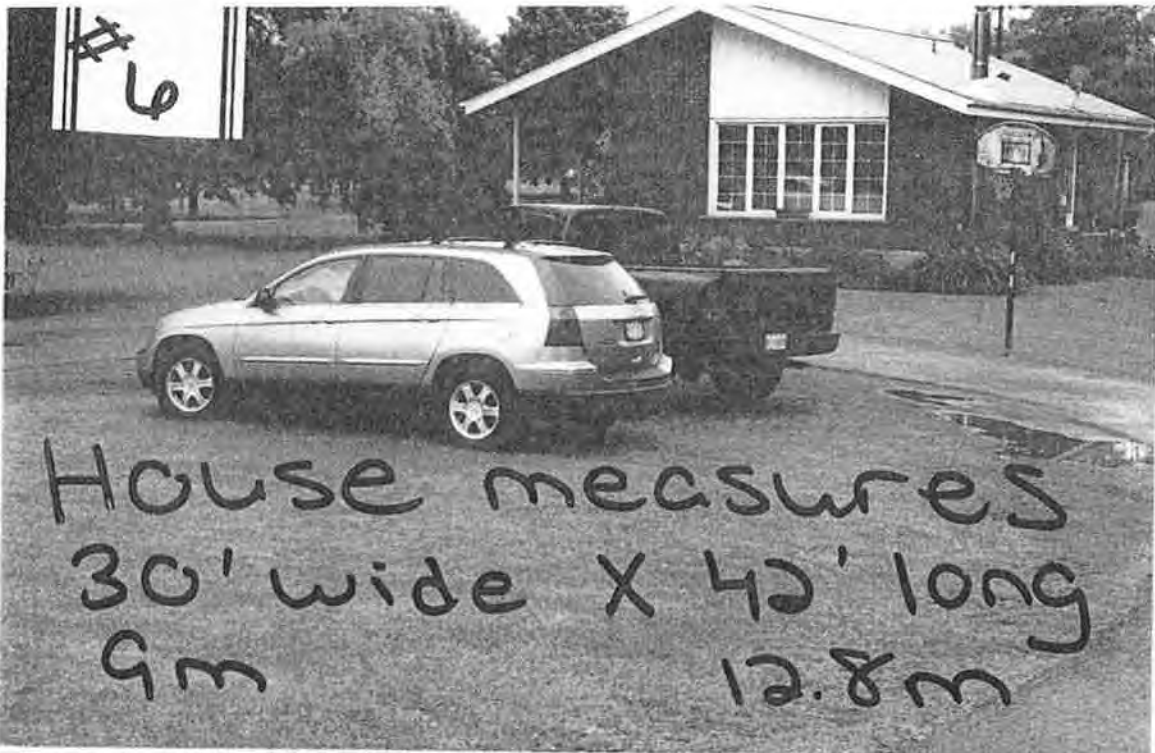 # 6
House measures
30' wide X 42' long
9m 12.8m